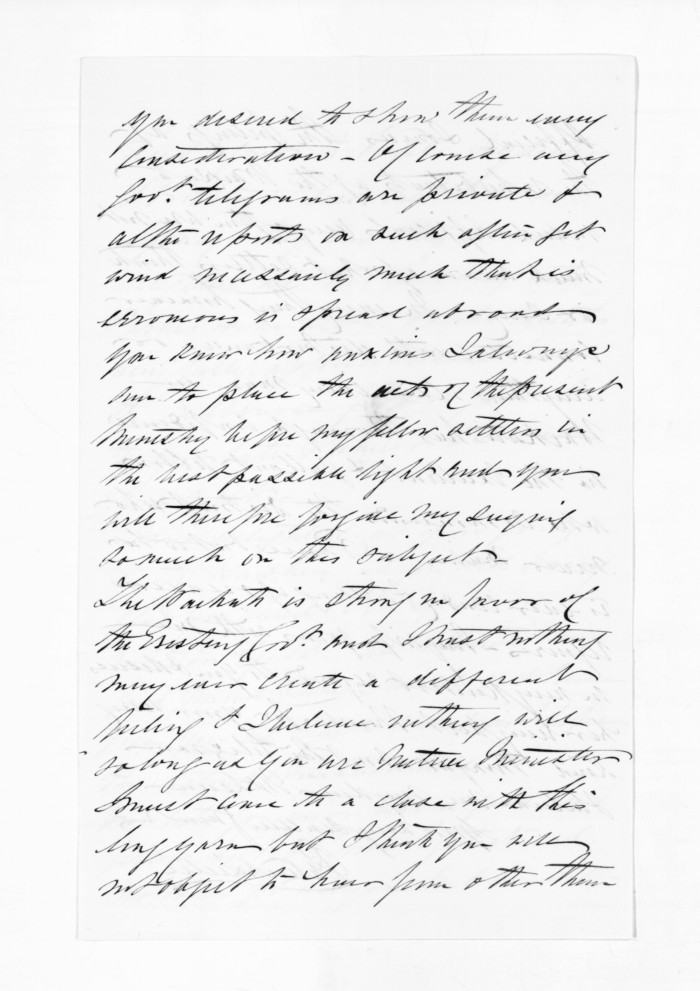 you desired to show them every
Consideration – Of course any
Govt. telegrams are private &
altho reports on such often get
wind necessarily much that is
erroneous is spread abroad
You know how anxious I always
am to place the acts of the present
Ministry before my fellow settlers in
the best possible light and you
will therefore forgive my saying
so much on this subject
The Waikato is strong in favor of
the Existing Govt. and I trust nothing
may ever create a different
feeling & I believe nothing will
so long as you are Native Minister
I must come to a close with this
long yarn but I think you will
not object to hear from other than